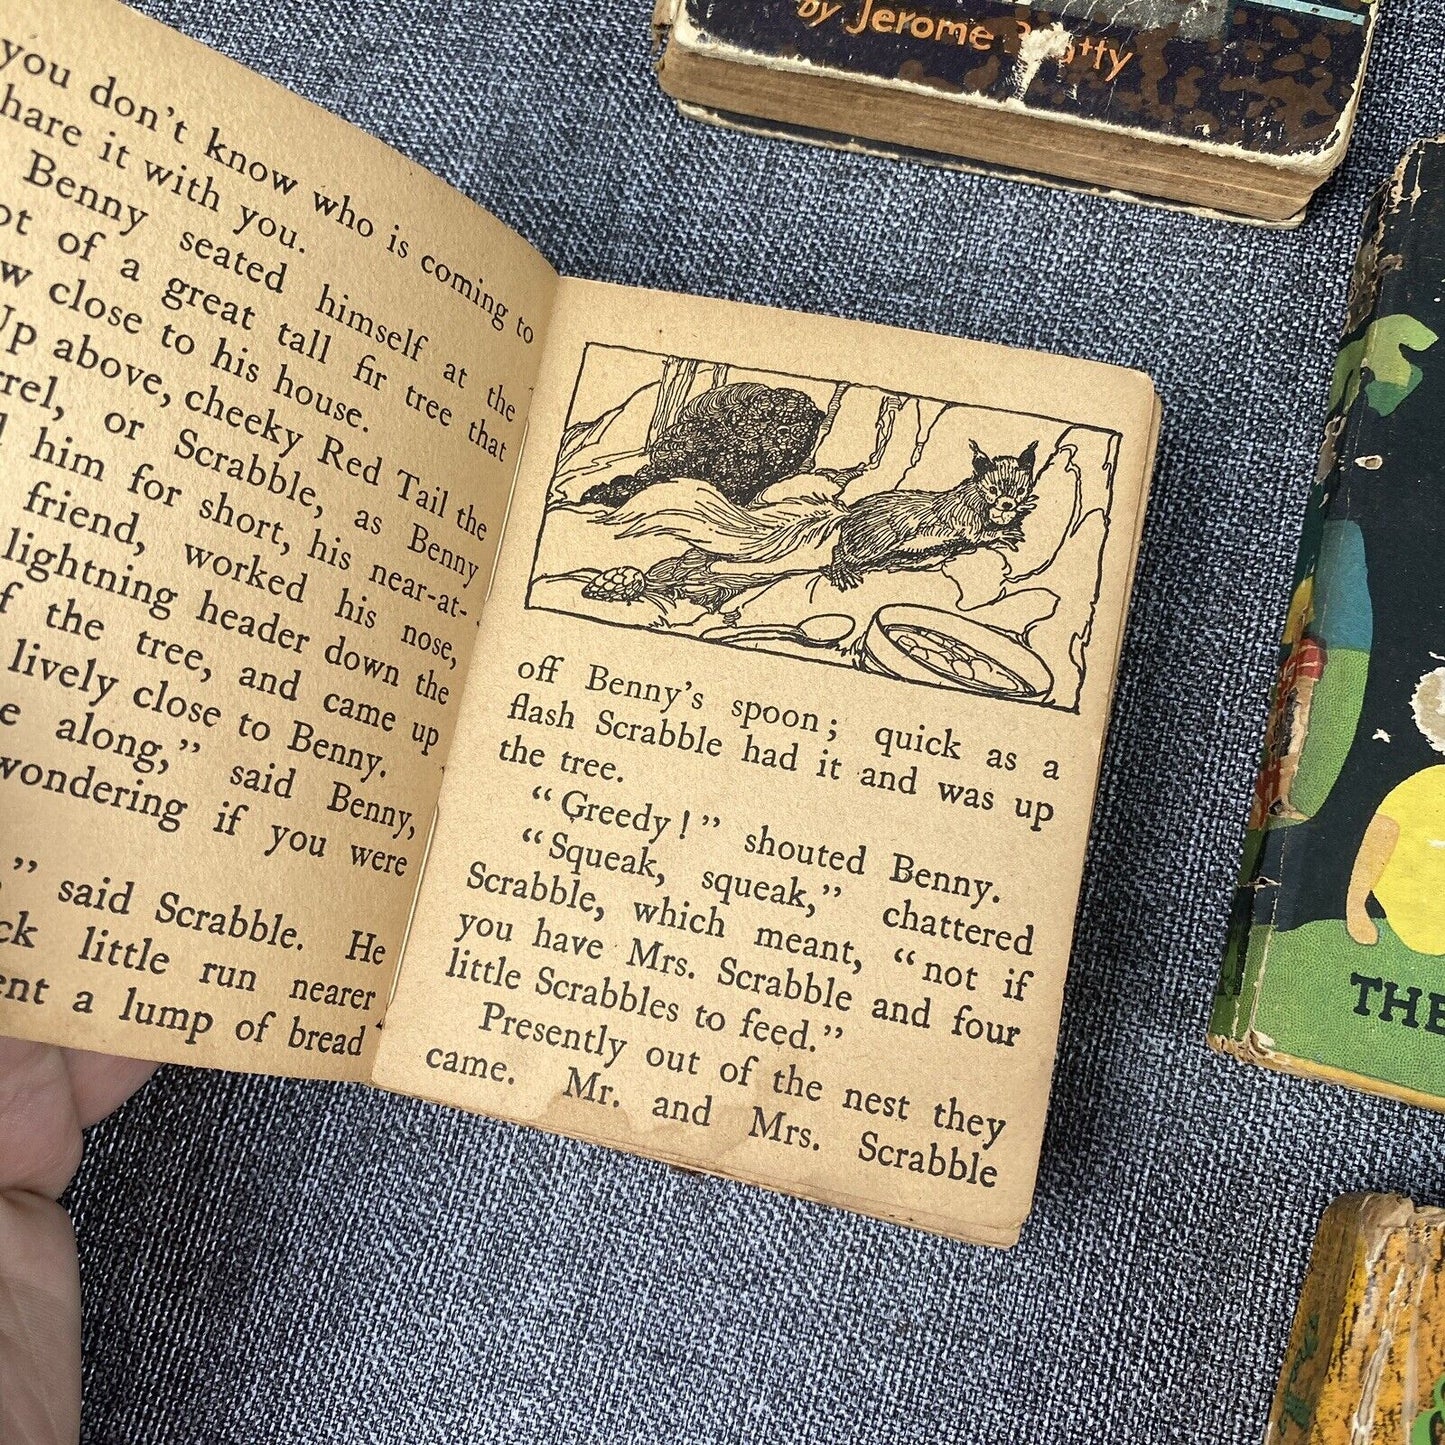 by Jerome
you don't know who is coming to
hare it with you.
Benny seated himself at the
ot of a great tall fir tree that
w close to his house.
Up above, cheeky Red Tail the
rrel, or Scrabble, as Benny
him for short, his near-at-
friend, worked his nose,
lightning header down the
f the tree, and came up
lively close to Benny.
e along," said Benny,
wondering if you were
," said Scrabble. He
ck little run nearer
ent a lump of bread
off Benny's spoon; quick as a
flash Scrabble had it and was up
the tree.
"Greedy!" shouted Benny.
"Squeak, squeak," chattered
Scrabble, which meant, "not if
you have Mrs. Scrabble and four
little Scrabbles to feed."
Presently out of the nest they
came. Mr. and Mrs. Scrabble
THE